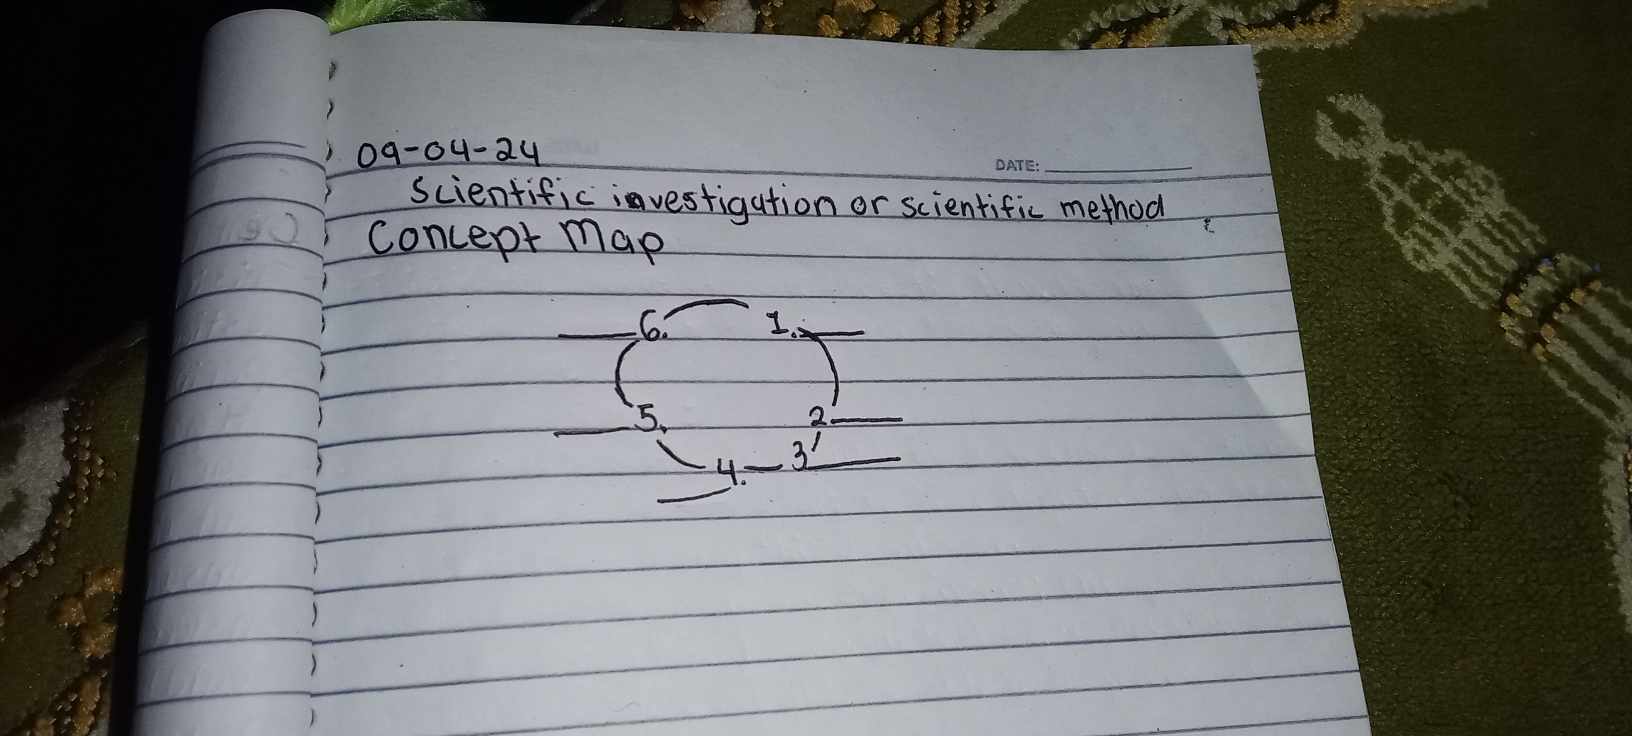 09-04-24
DATE:
Scientific investigation or scientific method
Concept Map
6. 1.
5. 2
3
4.